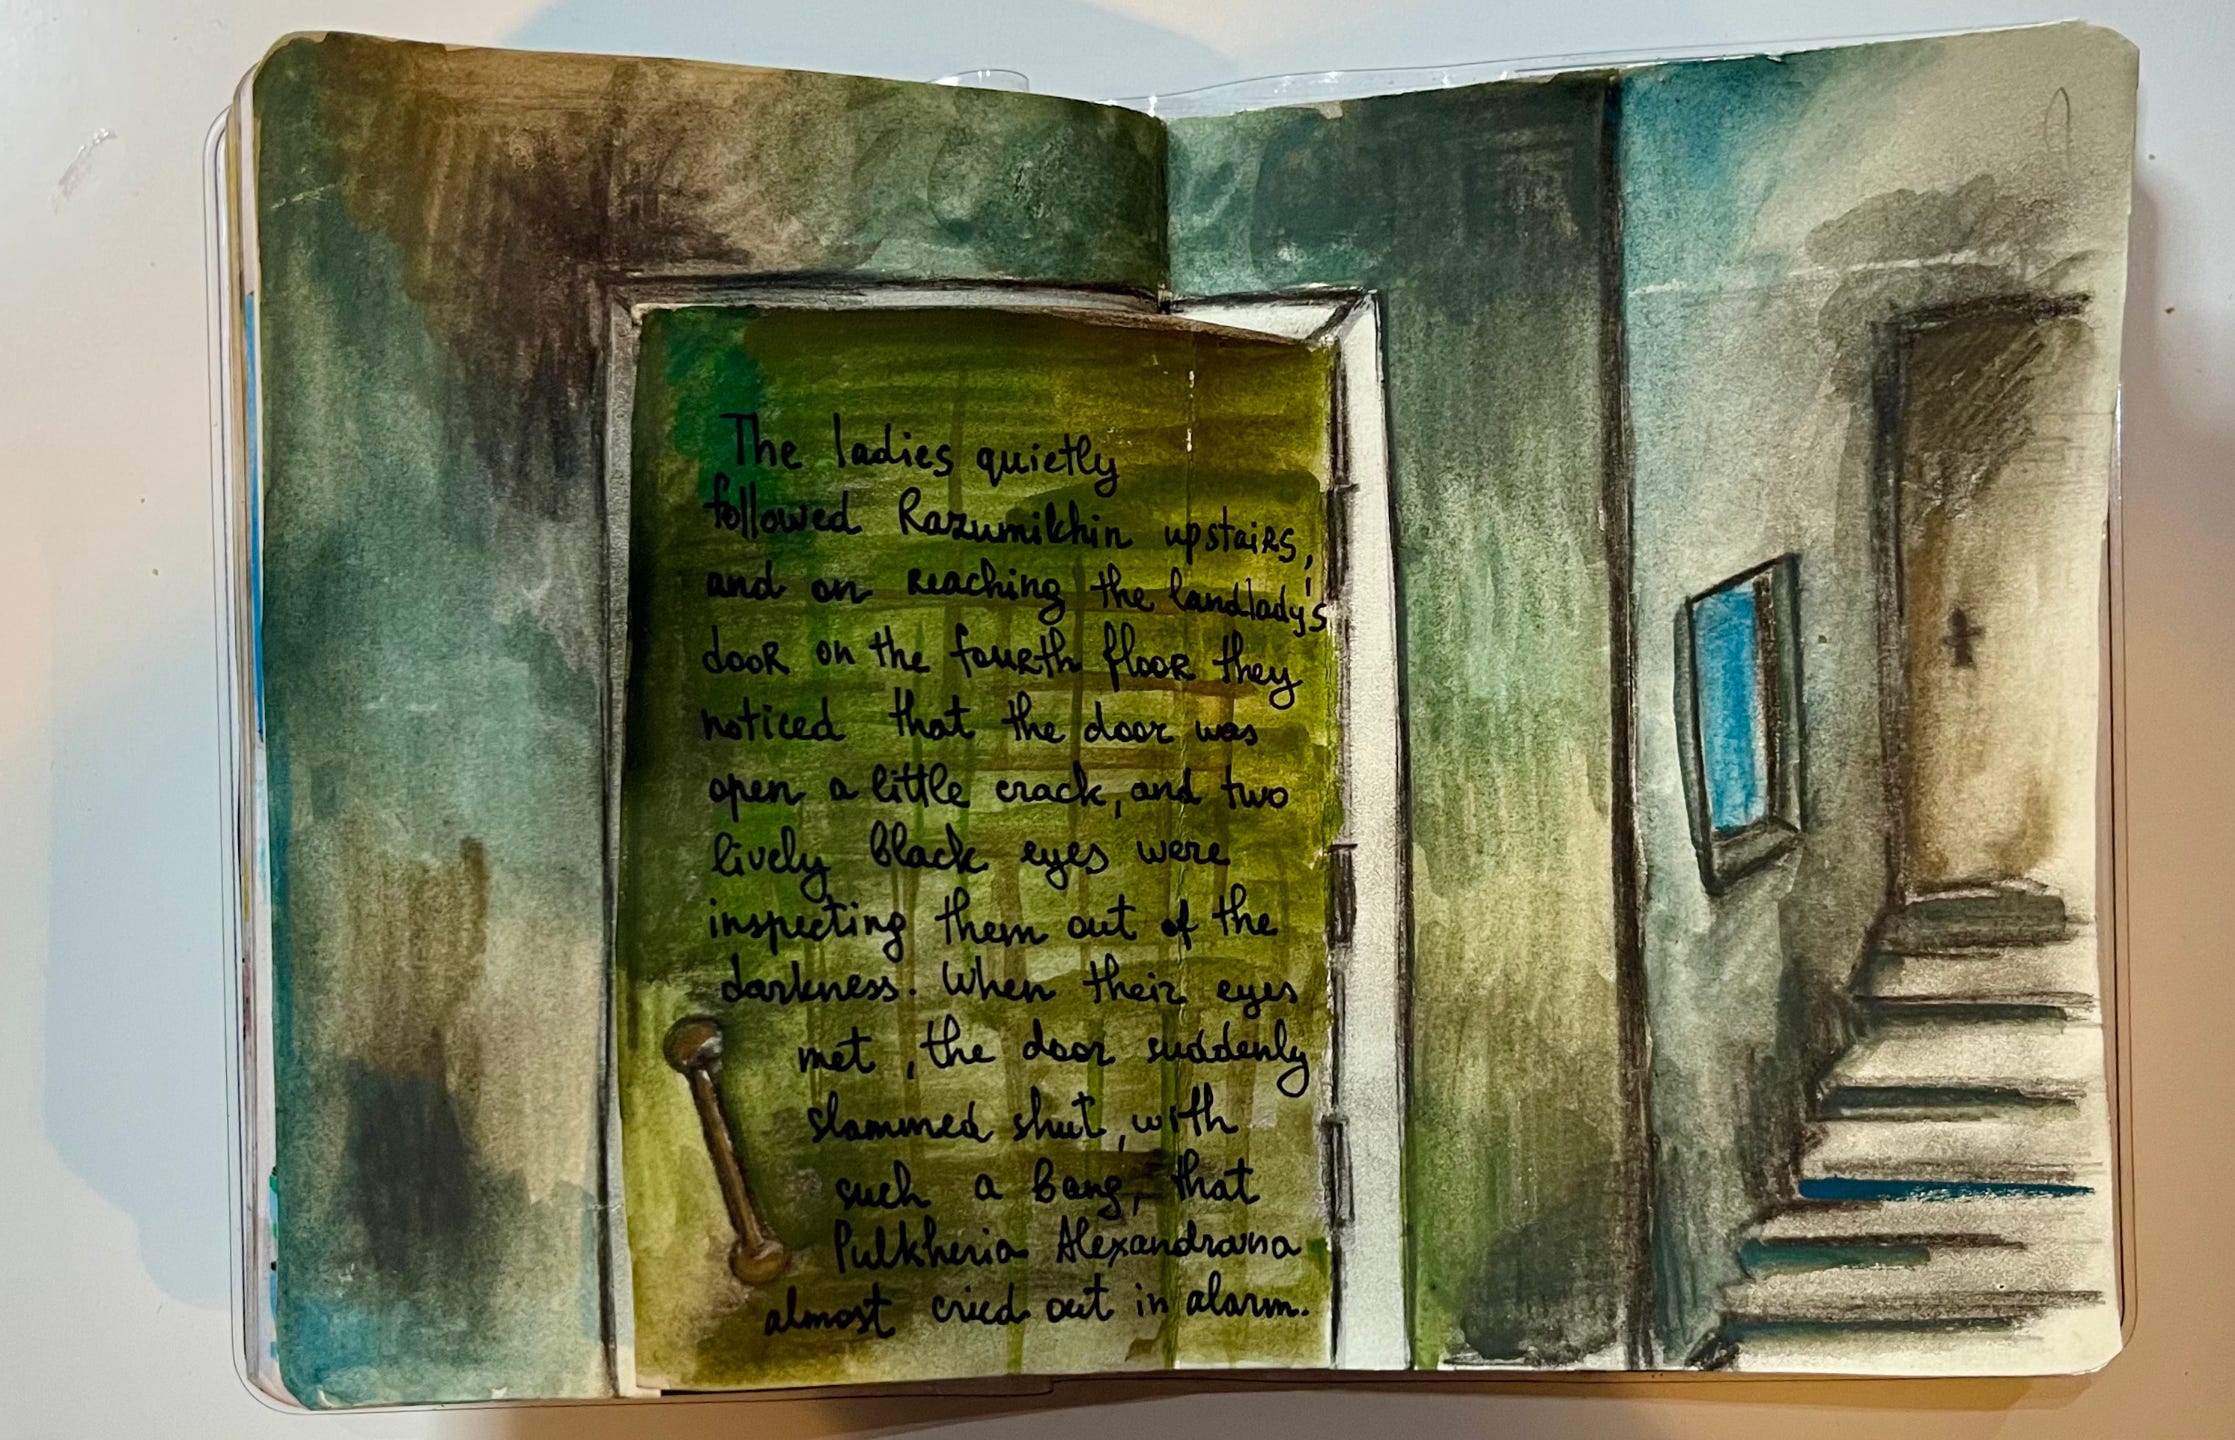 The ladies quietly
followed Razumikhin upstairs,
and on reaching the landlady's
door on the fourth floor they
noticed that the door was
open a little crack, and two
lively black eyes were
inspecting them out of the
darkness. When their eyes
met, the door suddenly
slammed shut, with
such a bang, that
Pulkheria Alexandrovna
almost cried out in alarm.